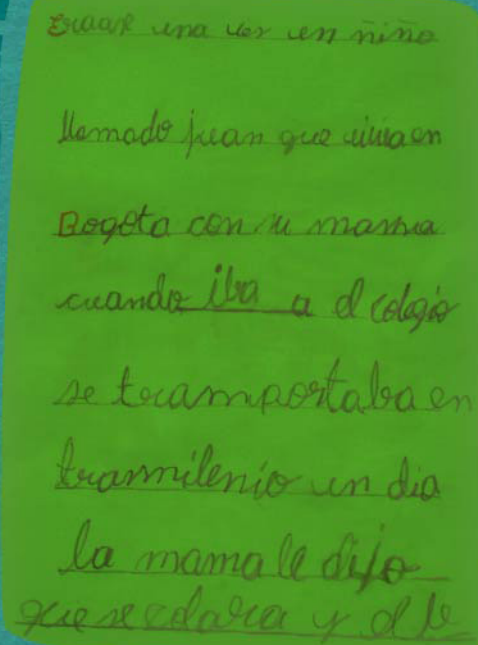 Eraase una ves un niño
llamado juan que vivia en
Bogota con su mama
cuando iba a el colegio
se tramportaba en
tranmilenio un dia
la mama le dijo
que se colara y el le